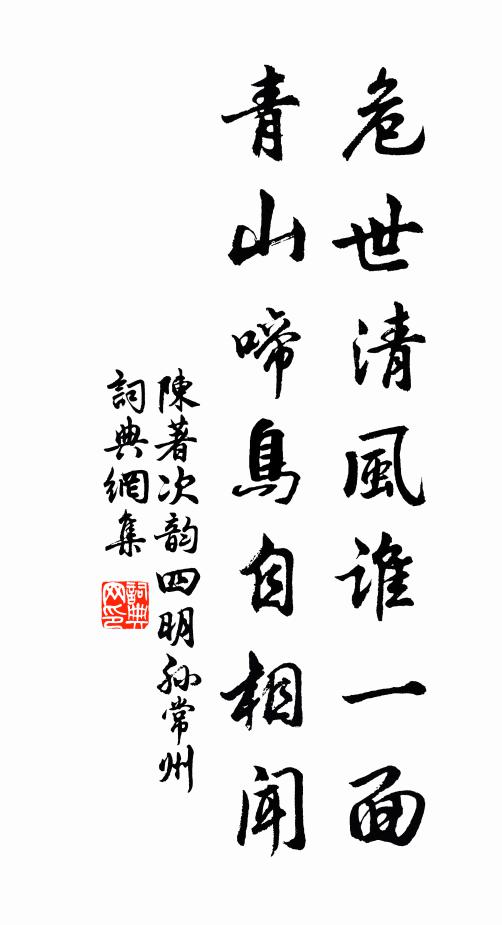 危世清風誰一面
青山啼鳥自相聞
陳著次韵四明孙常州
詞典網集
詞典网印